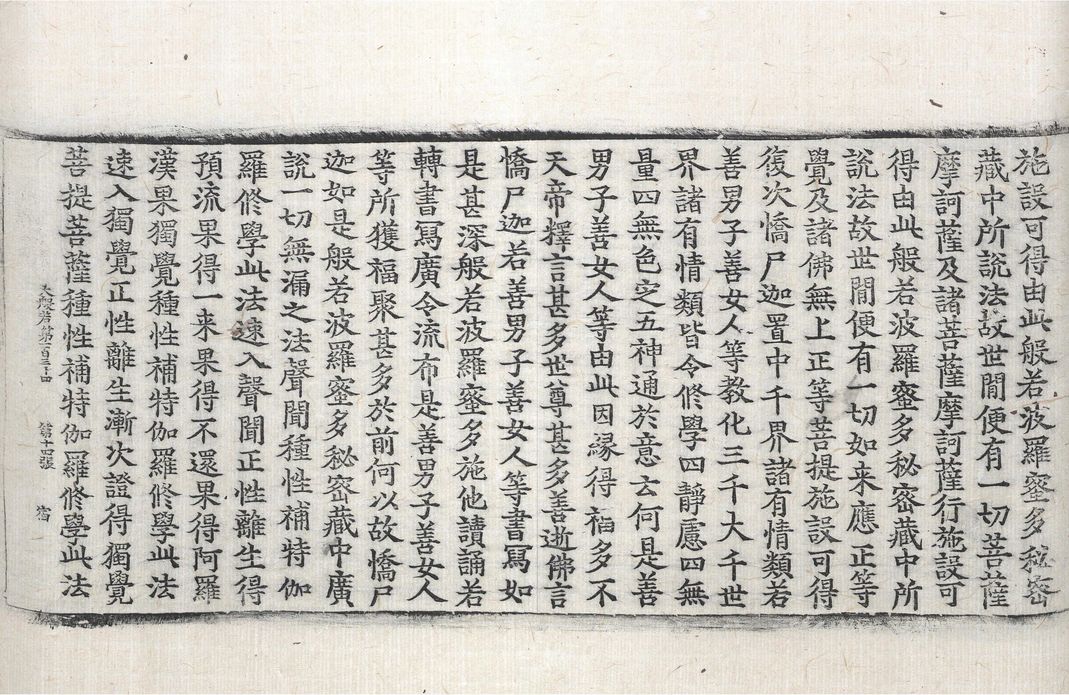 施設可得由此般若波羅蜜多秘密
藏中所説法故世閒便有一切菩薩
摩訶薩及諸菩薩摩訶薩行施設可
得由此般若波羅蜜多秘密藏中所
説法故世閒便有一切如来應正等
覺及諸佛無上正等菩提施設可得
復次憍尸迦置中千界諸有情類若
善男子善女人等教化三千大千世
界諸有情類皆令修學四靜慮四無
量四無色定五神通於意云何是善
男子善女人等由此因緣得福多不
天帝釋言甚多世尊甚多善逝佛言
憍尸迦若善男子善女人等書寫如
是甚深般若波羅蜜多施他讀誦若
轉書寫廣令流布是善男子善女人
等所獲福聚甚多於前何以故憍尸
迦如是般若波羅蜜多秘密藏中廣
説一切無漏之法聲聞種性補特伽
羅修學此法速入聲聞正性離生得
預流果得一来果得不還果得阿羅
漢果獨覺種性補特伽羅修學此法
速入獨覺正性離生漸次證得獨覺
菩提菩薩種性補特伽羅修學此法
大般若第一百三十四 第十四張 宿